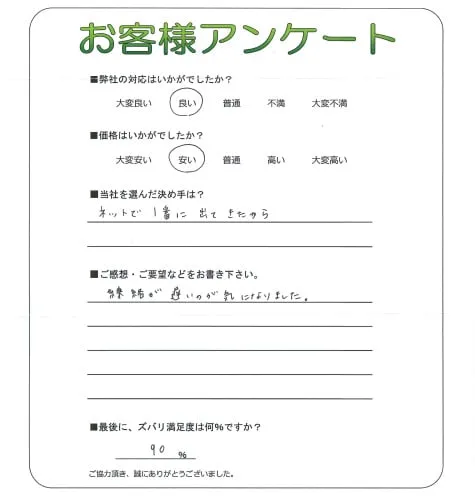 お客様アンケート
■弊社の対応はいかがでしたか?
大変良い 良い 普通 不満 大変不満
■価格はいかがでしたか?
大変安い 安い 普通 高い 大変高い
■当社を選んだ決め手は?
ネットで1番に出てきたから
■ご感想・ご要望などをお書き下さい。
が遅いのが気になりました。
■最後に、ズバリ満足度は何%ですか?
90 %
ご協力頂き、誠にありがとうございました。